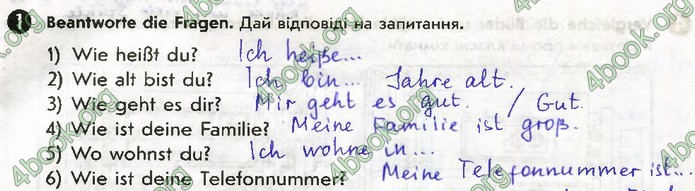 1 Beantworte die Fragen. Дай відповіді на запитання.
1) Wie heißt du? Ich heiße...
2) Wie alt bist du? Ich bin... Jahre alt.
3) Wie geht es dir? Mir geht es gut. / Gut.
4) Wie ist deine Familie? Meine Familie ist groß.
5) Wo wohnst du? Ich wohne in...
6) Wie ist deine Telefonnummer? Meine Telefonnummer ist...